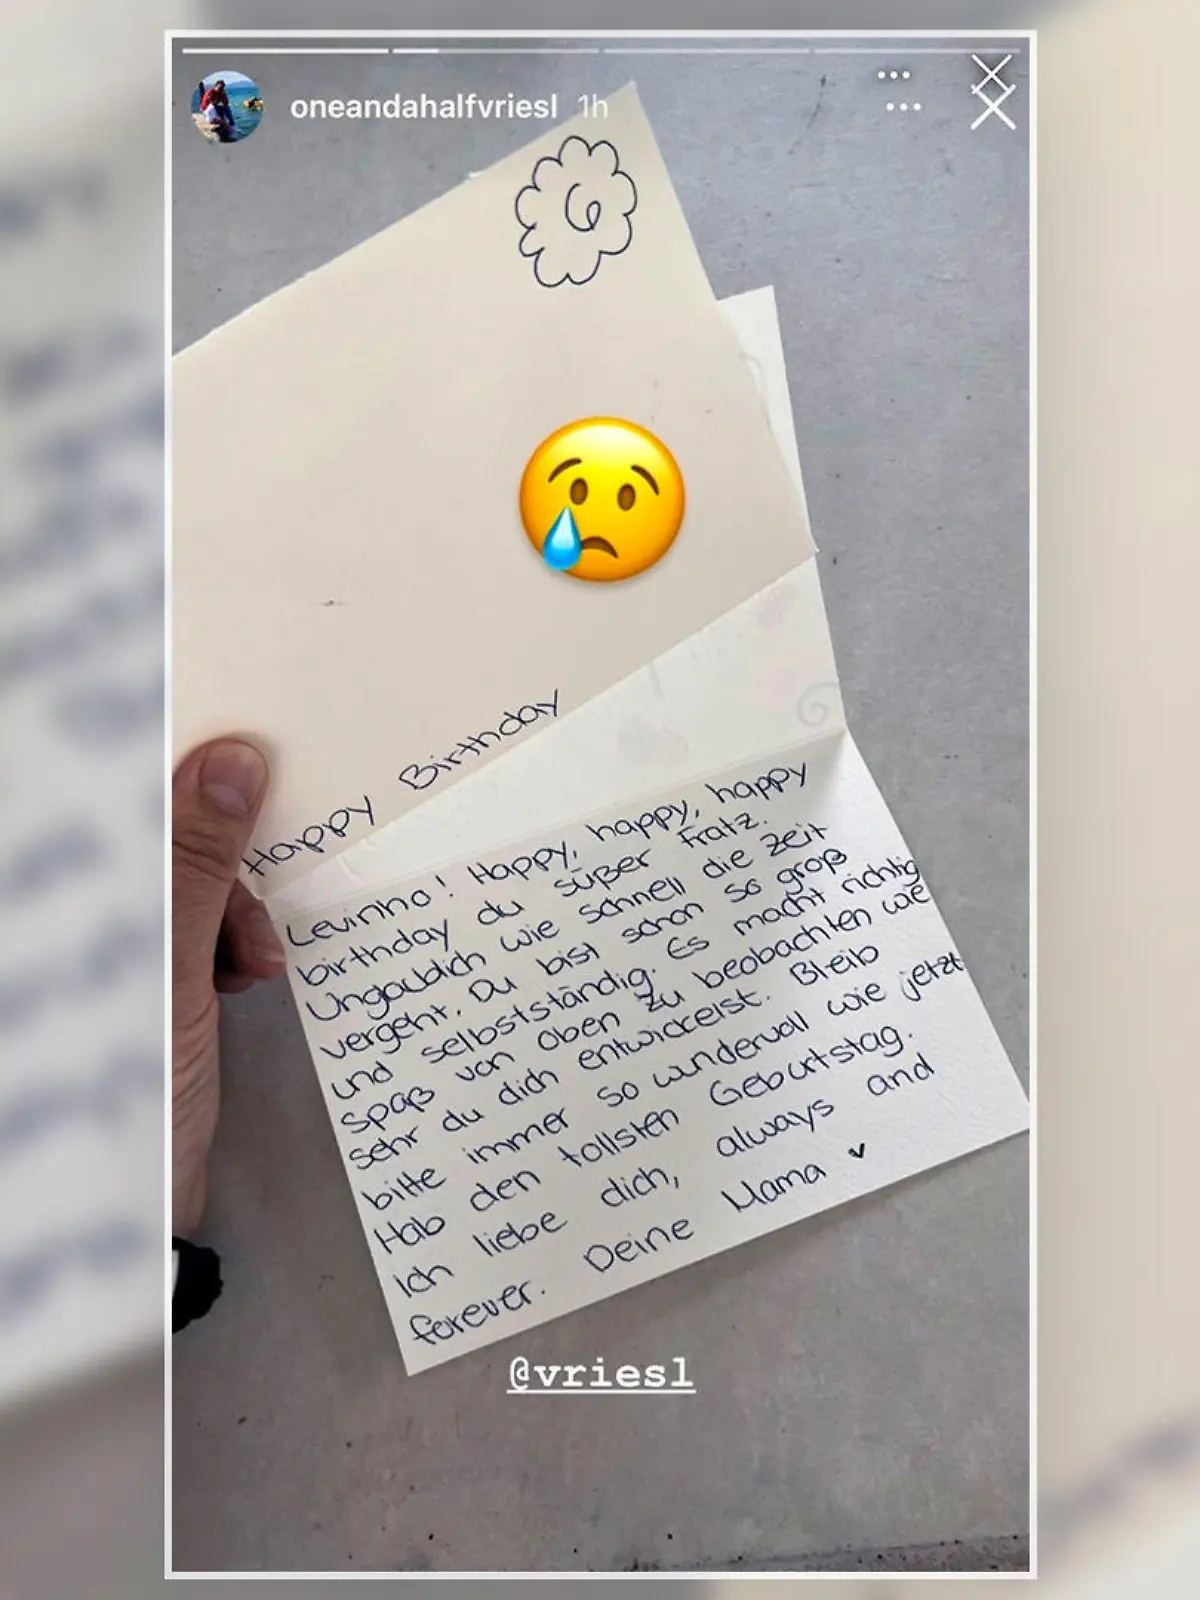 oneandahalfvriesl 1h
6
Happy Birthday
Levinho! Happy, happy, happy
birthday du süßer Fratz.
Ungaublich wie schnell die Zeit
vergeht. Du bist schon so groß
und selbstständig. Es macht richtig
spaß von oben zu beobachten wie
sehr du dich entwickelst. Bleib
bitte immer so wundervoll wie jetzt
Hab den tollsten Geburtstag.
Ich liebe dich, always and
forever. Deine Mama
@vriesl